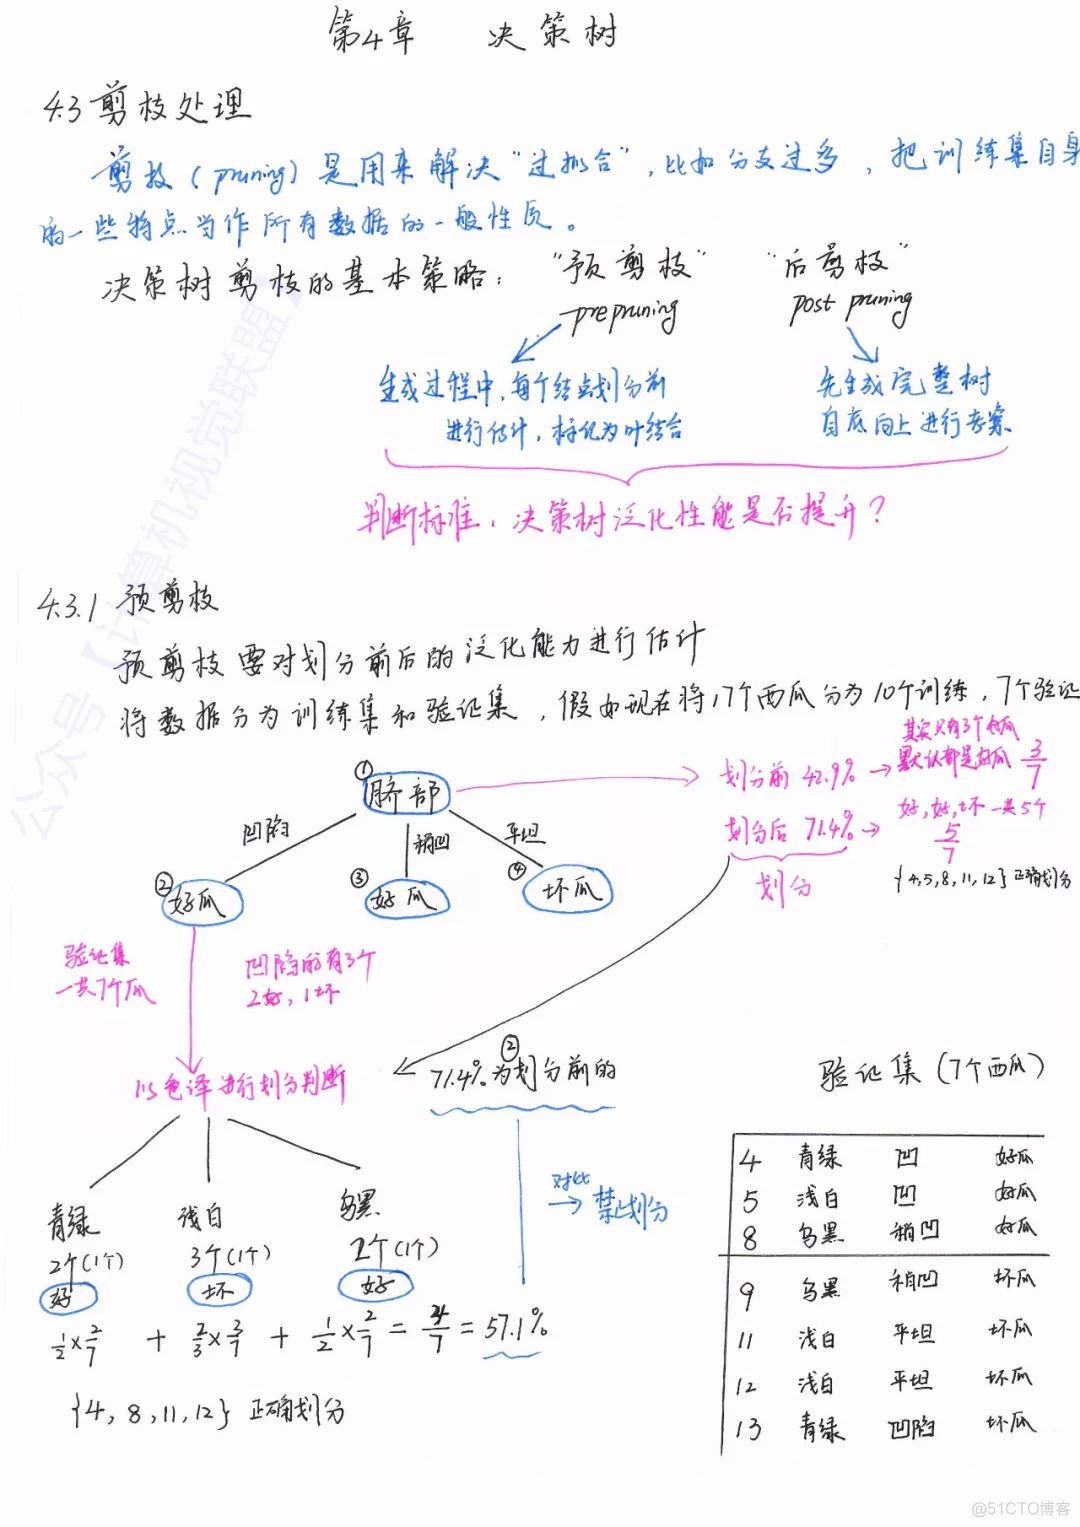 第4章 决策树
4.3 剪枝处理
剪枝(pruning)是用来解决"过拟合",比如分支过多,把训练集自身
的一些特点当作所有数据的一般性质。
决策树剪枝的基本策略: "预剪枝" "后剪枝"
prepruning post pruning
生成过程中,每个结点划分前 先生成完整树
进行估计,标化为叶结合 自底向上进行考察
判断标准:决策树泛化性能是否提升?
4.3.1 预剪枝
预剪枝要对划分前后的泛化能力进行估计
将数据分为训练集和验证集,假如现在将17个西瓜分为10个训练,7个验证
其实只有3个好瓜
① 脐部 划分前 42.9% 默认都是好瓜 3/7
凹陷 稍凹 平坦 划分后 71.4% 好,好,坏 一共5个
5/7
② 好瓜 ③ 好瓜 ④ 坏瓜 划分 {4,5,8,11,12} 正确划分
验证集 凹陷的有3个
一共7个瓜 2好,1坏
以色泽进行划分判断 71.4%为②划分前的 验证集(7个西瓜)
对比
禁止划分
青绿 浅白 乌黑
2个(1个) 3个(1个) 2个(1个)
好 坏 好
1/2×2/7 + 2/3×3/7 + 1/2×2/7 = 4/7 = 57.1%
{4,8,11,12} 正确划分
4 青绿 凹 好瓜
5 浅白 凹 好瓜
8 乌黑 稍凹 好瓜
9 乌黑 稍凹 坏瓜
11 浅白 平坦 坏瓜
12 浅白 平坦 坏瓜
13 青绿 凹陷 坏瓜
公众号【计算机视觉联盟】
@51CTO博客